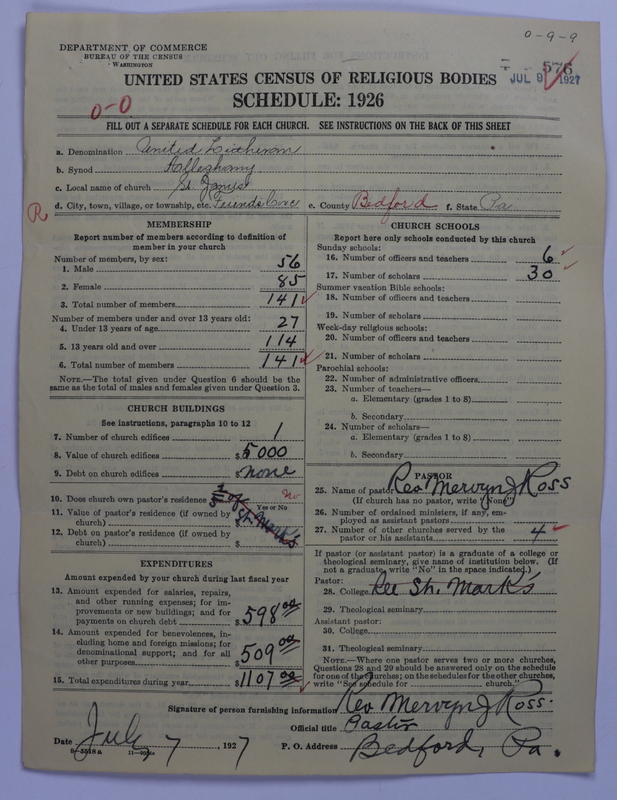 0-9-9
DEPARTMENT OF COMMERCE
BUREAU OF THE CENSUS
WASHINGTON
576
JUL 9 1927
UNITED STATES CENSUS OF RELIGIOUS BODIES
SCHEDULE: 1926
0-0
FILL OUT A SEPARATE SCHEDULE FOR EACH CHURCH. SEE INSTRUCTIONS ON THE BACK OF THIS SHEET
a. Denomination United Lutheran
b. Synod Alleghany
c. Local name of church St. James
R
d. City, town, village, or township, etc. Friends Cove e. County Bedford f. State Pa
MEMBERSHIP
Report number of members according to definition of
member in your church
Number of members, by sex:
1. Male 56
2. Female 85
3. Total number of members 141
Number of members under and over 13 years old:
4. Under 13 years of age 27
5. 13 years old and over 114
6. Total number of members 141
NOTE.—The total given under Question 6 should be the
same as the total of males and females given under Question 3.
CHURCH BUILDINGS
See instructions, paragraphs 10 to 12
7. Number of church edifices 1
8. Value of church edifices $5000
9. Debt on church edifices $none
10. Does church own pastor's residence no
Yes or No
11. Value of pastor's residence (if owned by
church)
12. Debt on pastor's residence (if owned by
church) $
1/5 of St. Mark's
EXPENDITURES
Amount expended by your church during last fiscal year
13. Amount expended for salaries, repairs,
and other running expenses; for im-
provements or new buildings; and for
payments on church debt $598.00
14. Amount expended for benevolences, in-
cluding home and foreign missions; for
denominational support; and for all
other purposes $509.00
15. Total expenditures during year $1107.00
CHURCH SCHOOLS
Report here only schools conducted by this church
Sunday schools:
16. Number of officers and teachers 6
17. Number of scholars 30
Summer vacation Bible schools:
18. Number of officers and teachers
19. Number of scholars
Week-day religious schools:
20. Number of officers and teachers
21. Number of scholars
Parochial schools:
22. Number of administrative officers
23. Number of teachers—
a. Elementary (grades 1 to 8)
b. Secondary
24. Number of scholars—
a. Elementary (grades 1 to 8)
b. Secondary
PASTOR
25. Name of pastor Rev Mervyn J Ross
(If church has no pastor, write "None")
26. Number of ordained ministers, if any, em-
ployed as assistant pastors
27. Number of other churches served by the
pastor or his assistants 4
If pastor (or assistant pastor) is a graduate of a college or
theological seminary, give name of institution below. (If
not a graduate, write "No" in the space indicated.)
Pastor:
28. College See St. Mark's
29. Theological seminary
Assistant pastor:
30. College
31. Theological seminary
NOTE.—Where one pastor serves two or more churches,
Questions 28 and 29 should be answered only on the schedule
for one of the churches; on the schedules for the other churches,
write "See schedule for church."
Signature of person furnishing information Rev Mervyn J Ross
Official title Pastor
Date July 7, 1927 P. O. Address Bedford, Pa.